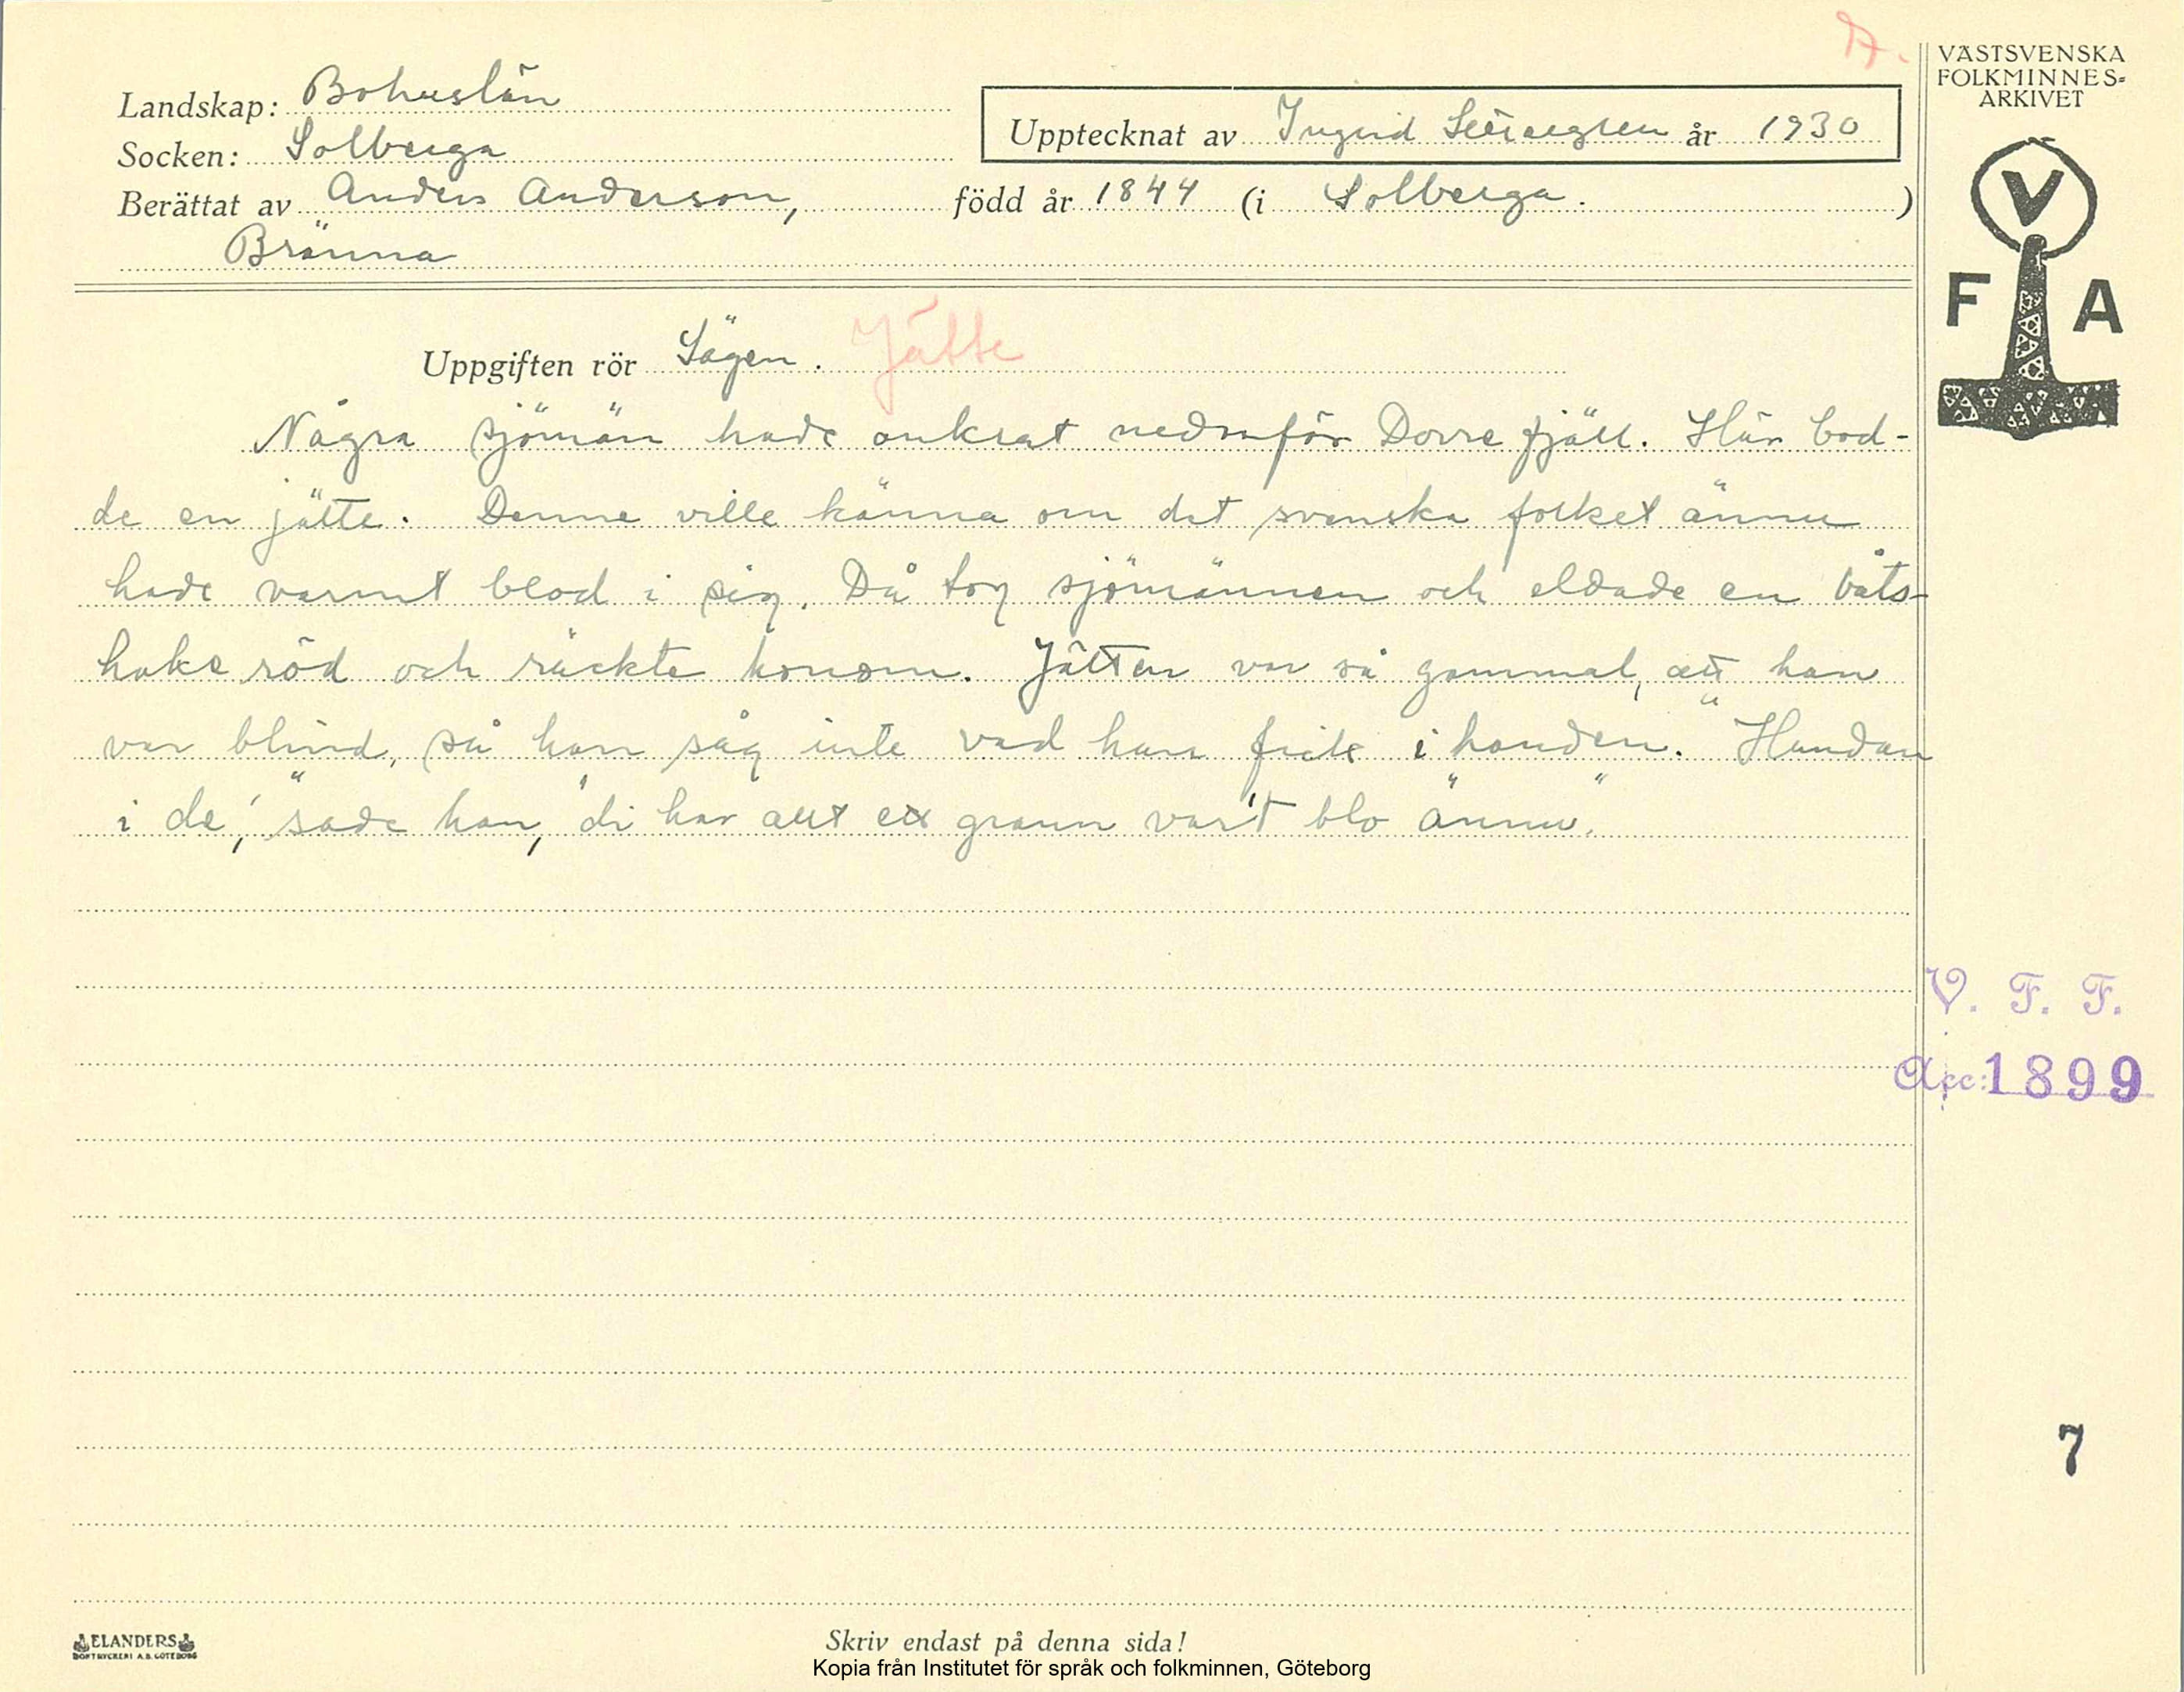 D.
VÄSTSVENSKA
FOLKMINNES-
ARKIVET
Landskap: Bohuslän
Upptecknat av Ingrid år 1930
Socken: Solberga
Berättat av Anders Anderson, född år 1844 (i Solberga. )
Bränna
V
F A
Uppgiften rör Sägen. Jätte
Några sjömän hade ankrat nedanför Dovre fjäll. Här bod-
de en jätte. Denne ville känna om det svenska folket ännu
hade varmt blod i sig. Då tog sjömännen och eldade en båts-
hake röd och räckte honom. Jätten var så gammal, att han
var blind, så han såg inte vad han fick i handen. "Handan
i de," sade han, "di har allt ett grann var't blo ännu."
V. F. F.
Acc: 1899
7
ELANDERS
BOKTRYCKERI A.B. GÖTEBORG
Skriv endast på denna sida!
Kopia från Institutet för språk och folkminnen, Göteborg